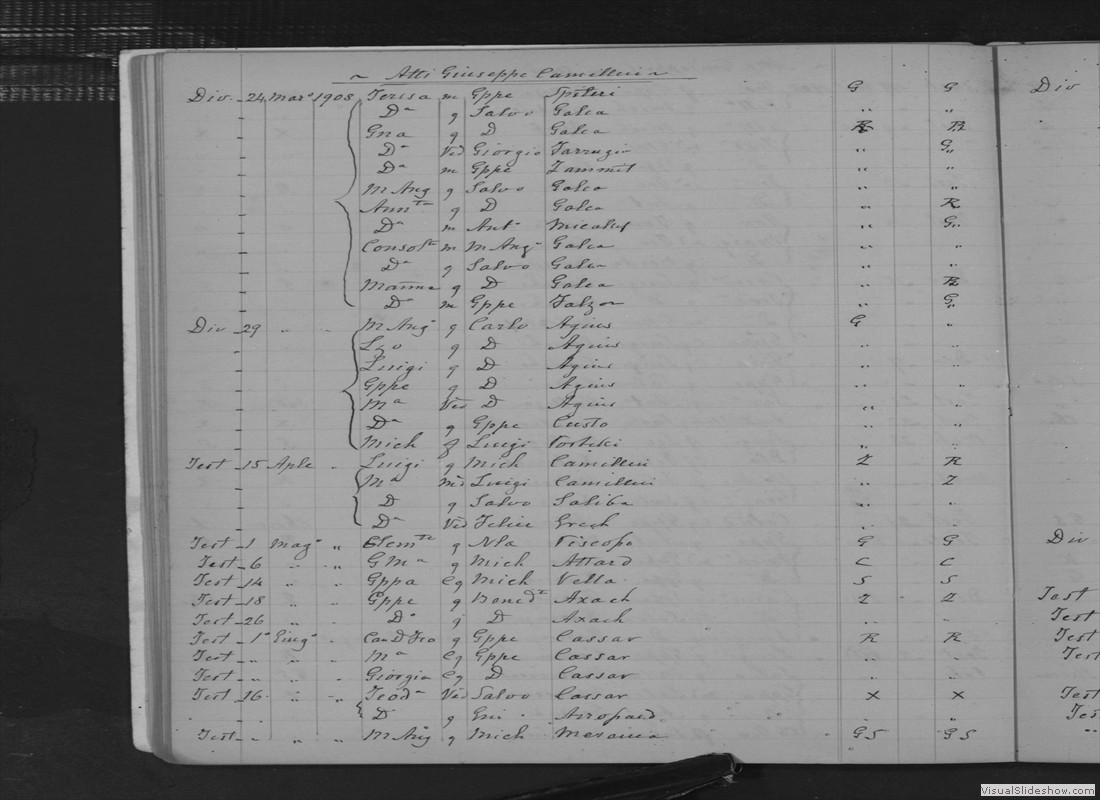 ~ Atti Giuseppe Camilleri ~
Div. 24 Mar° 1908 Teresa m Gppe Spiteri G G
" Da g Salvo Galea " "
" Gna g D Galea R R
" Da Ved Giorgio Farrugia " G"
" Da m Gppe Zammit " "
" M Ang g Salvo Galea " "
" Ann ta g D Galea " R
" Da m Ant° Micallef " G"
" Consol ta m M Ang° Galea " "
" Da g Salvo Galea " "
" Marna g D Galea " R
" Da m Gppe Falzon " G"
Div 29 " " M Ang° g Carlo Agius G "
" g D Agius " "
" Luigi g D Agius " "
" Gppe g D Agius " "
" Ma Ved D Agius " "
" Da g Gppe Custo " "
" Mich g Luigi " "
Test 15 Aple " Luigi g Mich Camilleri Z R
" Ma Luigi Camilleri " Z
" D g Salvo Saliba " "
" Da Ved Felice Grech " "
Test 1 Mag° " Clem te g Nla Piscopo G G
Test 6 " " G Ma g Mich Attard C C
Test 14 " " Gppa Cg Mich Vella S S
Test 18 " " Gppe g Bened to Axach Z Z
Test 26 " " D° g D Axach " "
Test 1° Giug° " Can D Fco g Gppe Cassar R R
Test " " " Ma Cg Gppe Cassar " "
Test " " " Giorgia Cg D Cassar " "
Test 16 " " Teod a Ved Salvo Cassar X X
" D g Gni " "
Test " " " M Ang g Mich GS GS
Div
Div
Test
Test
Test
Test
Test
Test
"
VisualSlideshow.com